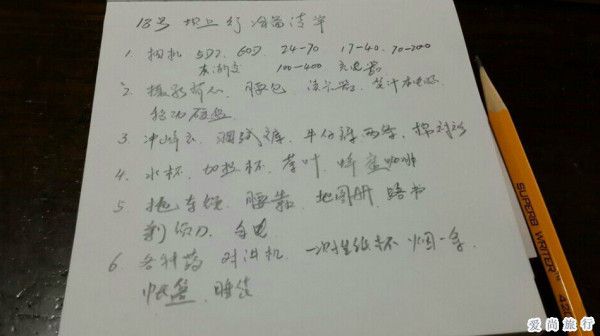 18号坝上行准备清单
1. 相机 5D2、60D、24-70 17-40、70-200
灰渐变 100-400 充电器
2. 摄影背心、腰包 读卡器、笔记本电脑
移动硬盘
3. 冲锋衣、牛仔裤两条、
4. 水杯、加热杯、茶叶、蜂蜜 咖啡
5、拖车绳、腰靠、地图册、路书
剃须刀、手电
6 各种药 对讲机 一次性纸杯 烟一条、
睡袋
SUPERB WRITER
爱尚旅行